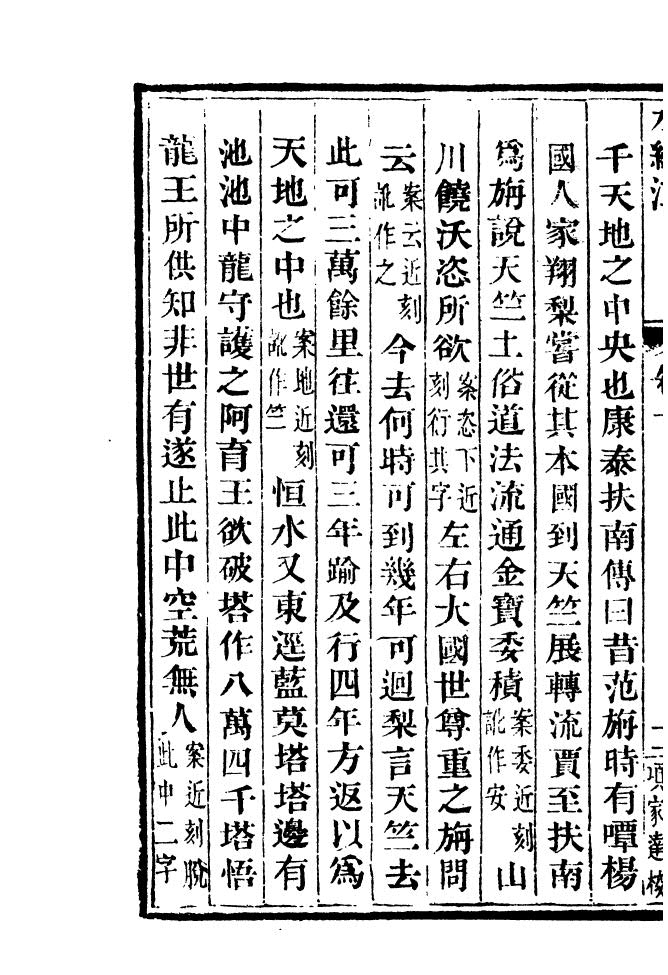 千天地之中央也康泰扶南傳曰昔范旃時有嘾楊
國人家翔梨嘗從其本國到天竺展轉流賈至扶南
爲旃說天竺土俗道法流通金寶委積案委近刻訛作安山
川饒沃恣所欲案恣下近刻衍其字左右大國世尊重之旃問
云案云近刻訛作之今去何時可到幾年可迴梨言天竺去
此可三萬餘里往還可三年踰及行四年方返以爲
天地之中也案地近刻訛作竺恒水又東逕藍莫塔塔邊有
池池中龍守護之阿育王欲破塔作八萬四千塔悟
龍王所供知非世有遂止此中空荒無人案近刻脫此中二字